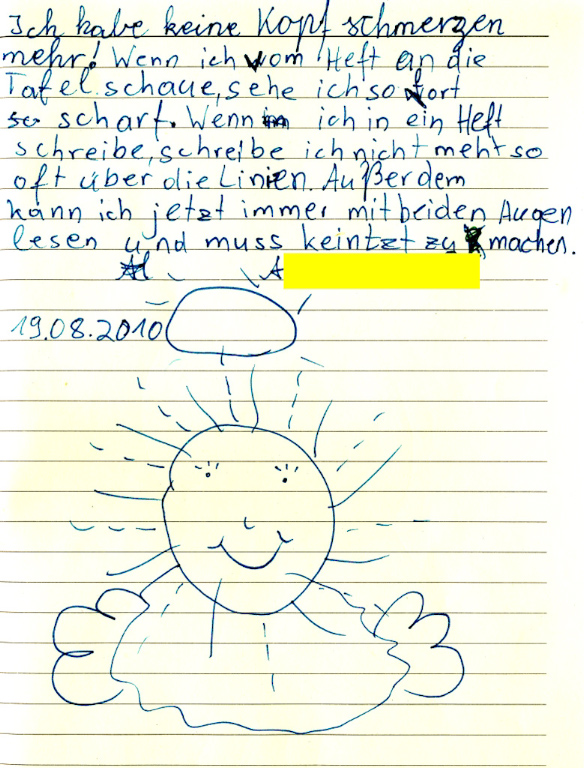 Ich habe keine Kopfschmerzen
mehr! Wenn ich vom Heft an die
Tafel schaue, sehe ich sofort
scharf. Wenn ich in ein Heft
schreibe, schreibe ich nicht mehr so
oft über die Linien. Außerdem
kann ich jetzt immer mit beiden Augen
lesen und muss keintzt zu machen.
A
19.08.2010